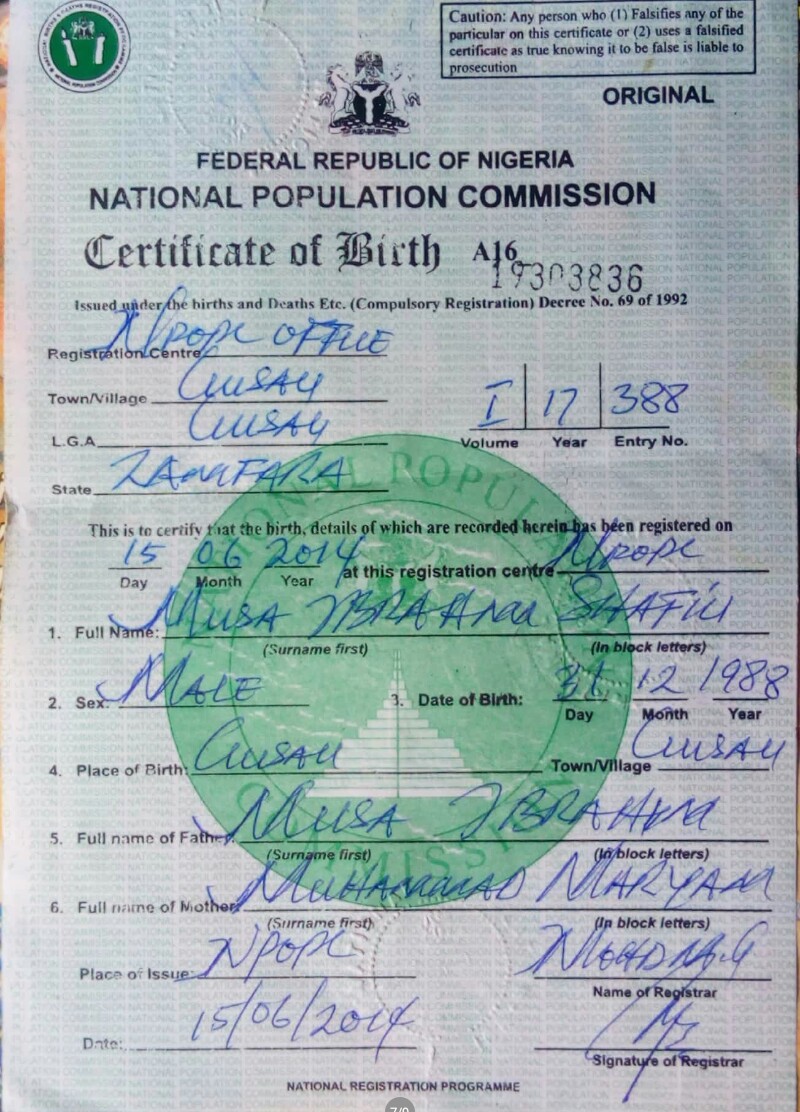 Caution: Any person who (1) Falsifies any of the
particular on this certificate or (2) uses a falsified
certificate as true knowing it to be false is liable to
prosecution
ORIGINAL
FEDERAL REPUBLIC OF NIGERIA
NATIONAL POPULATION COMMISSION
Certificate of Birth A16 19303836
Issued under the births and Deaths Etc. (Compulsory Registration) Decree No. 69 of 1992
Registration Centre Npopc OFFICE
Town/Village GUSAU
L.G.A. GUSAU
I 17 388
Volume Year Entry No.
State ZAMFARA
This is to certify that the birth, details of which are recorded herein has been registered on
15 06 2014 at this registration centre Npopc
Day Month Year
1. Full Name: MUSA IBRAHIM SHAFIU
(Surname first) (In block letters)
2. Sex: MALE 3. Date of Birth: 31 12 1988
Day Month Year
4. Place of Birth: GUSAU Town/Village GUSAU
5. Full name of Father: MUSA IBRAHIM
(Surname first) (In block letters)
6. Full name of Mother: MUHAMMAD MARYAM
(Surname first) (In block letters)
Place of Issue: NPOPC
Name of Registrar
Date: 15/06/2014
Signature of Registrar
NATIONAL REGISTRATION PROGRAMME
7/9